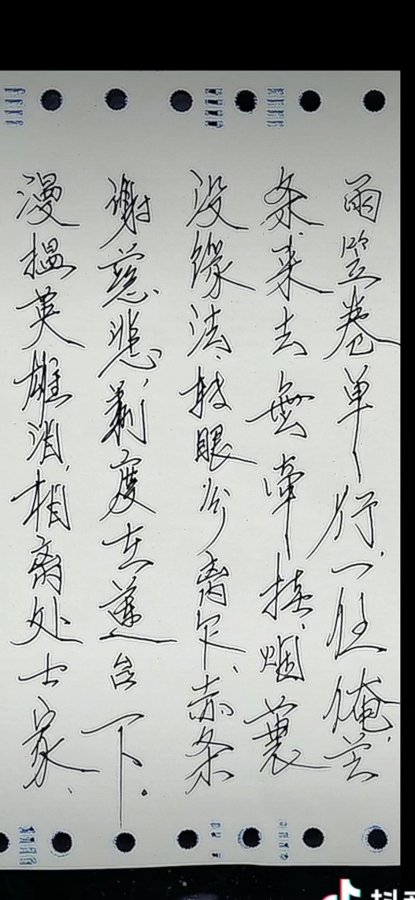 漫揾英雄泪,相离处士家、
谢慈悲,剃度在莲台下。
没缘法、转眼分离乍、赤条
条、来去無牽挂、烟蓑
雨笠卷单行、一任俺芒